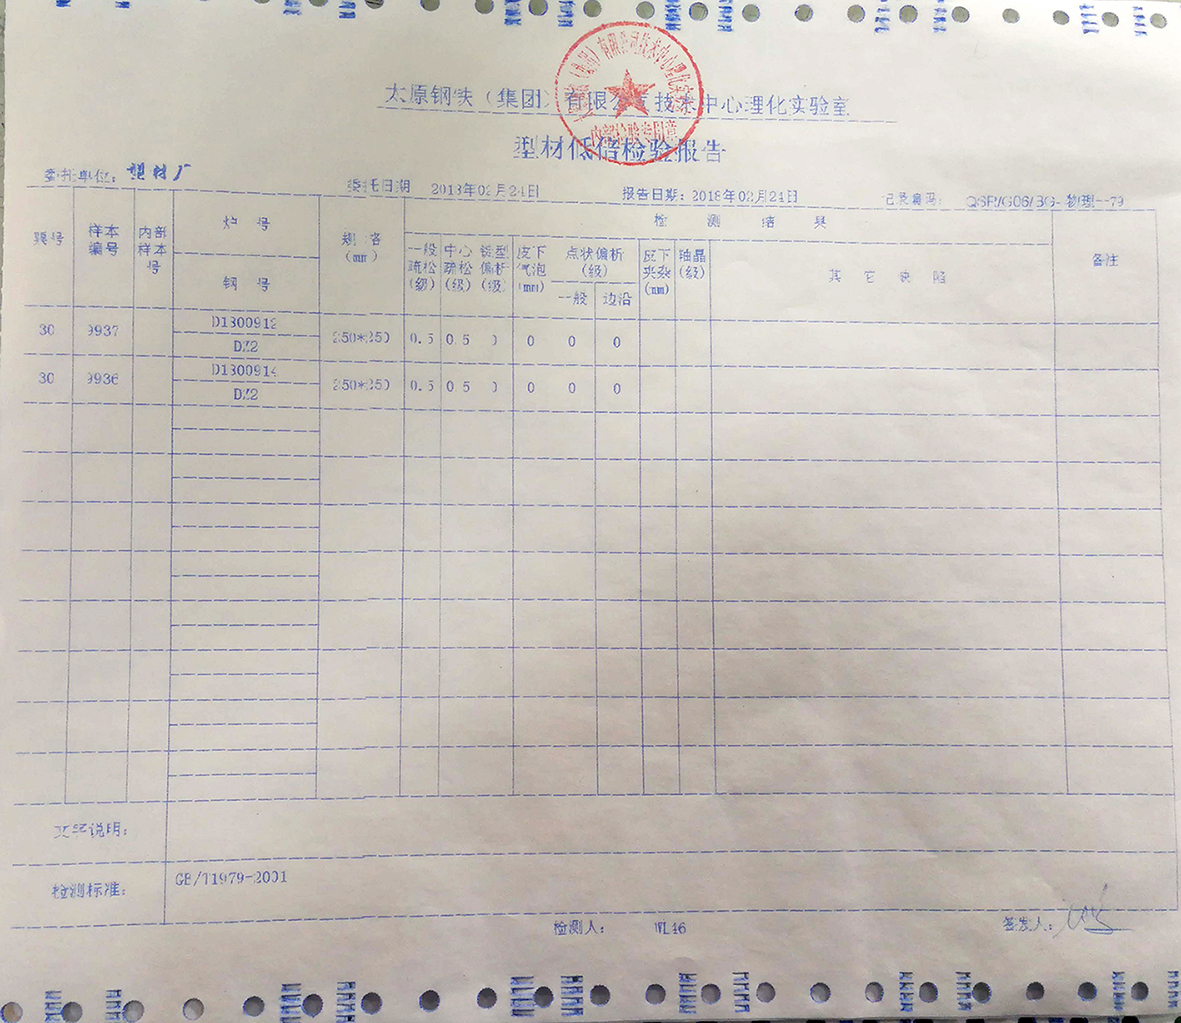 太原钢铁（集团）有限公司技术中心理化实验室
型材低倍检验报告
委托单位：型材厂 委托日期 2018年02月24日 报告日期：2018年02月24日 记录编码： QSP/G06/BG-物理--79
票号 样本编号 内部样本号 炉号 钢号 规格(mm) 检测结果 备注
一般疏松(级) 中心疏松(级) 锭型偏析(级) 皮下气泡(mm) 点状偏析(级) 一般 边沿 皮下夹杂(mm) 轴晶(级) 其它缺陷
30 9937 D1800912 DZ2 250*250 0.5 0.5 0 0 0 0
30 9936 D1800914 DZ2 250*250 0.5 0.5 0 0 0 0
文字说明：
检测标准： GB/T1979-2001
检测人： WL46 签发人：
内部检验专用章